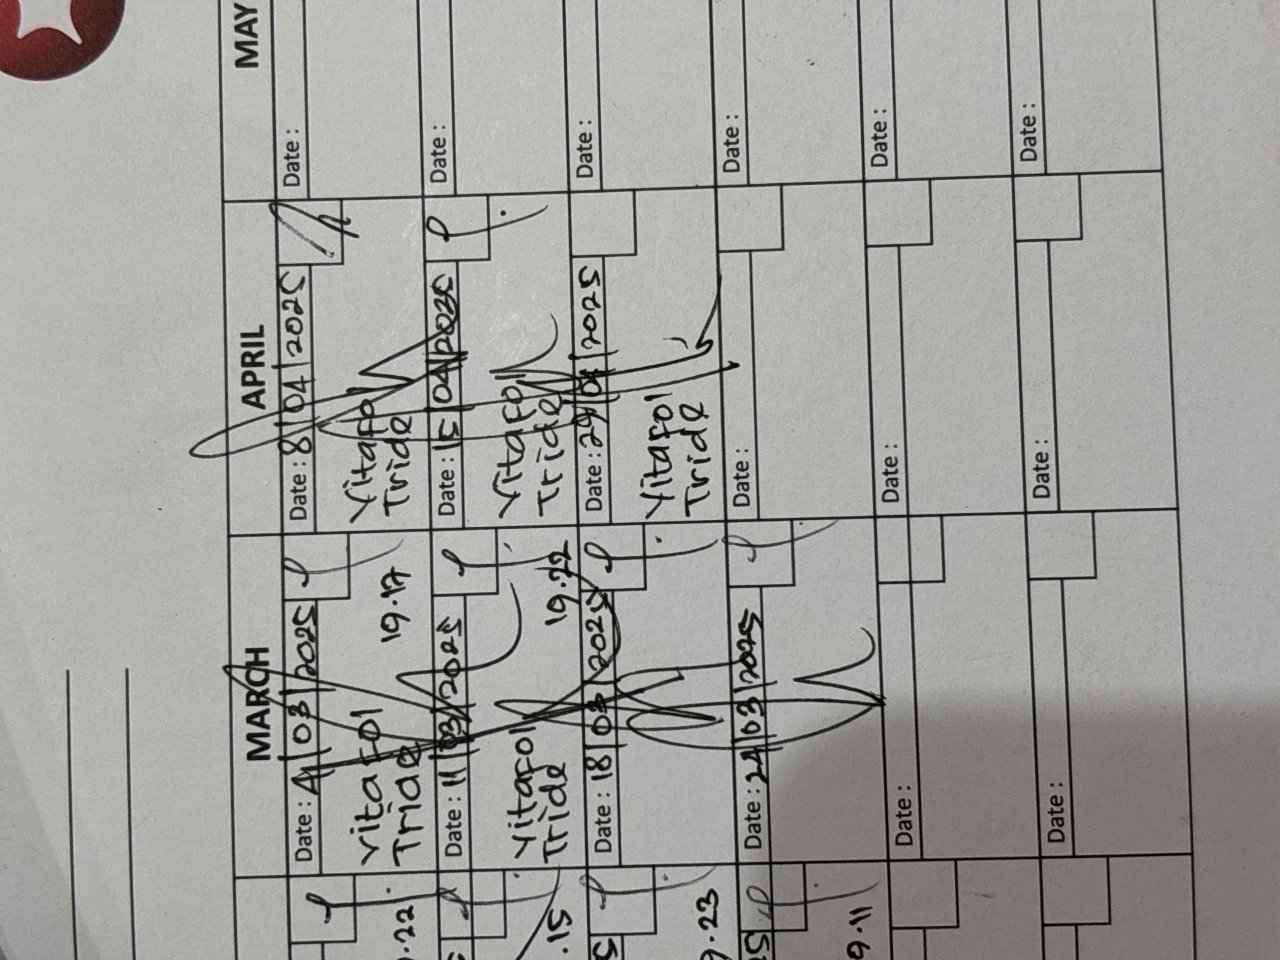 MARCH
APRIL
MAY
Date : 4/03/2025
Vitafol
Tride
19.17
Date : 8/04/2025
Vitafol
Tride
Date :
Date : 11/03/2025
Vitafol
Tride
19.22
Date : 15/04/2025
Vitafol
Tride
Date :
Date : 18/03/2025
Date : 29/04/2025
Vitafol
Tride
Date :
Date : 24/03/2025
Date :
Date :
Date :
Date :
Date :
Date :
Date :
Date :